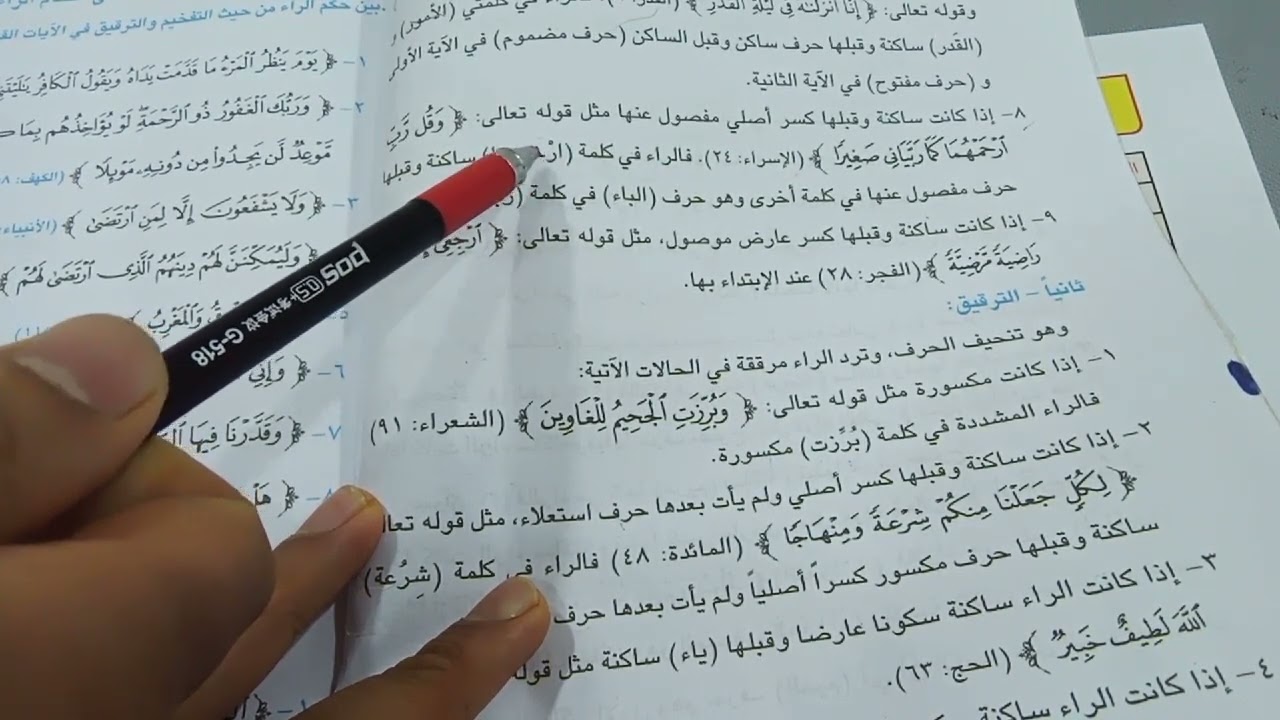 وقوله تعالى: ﴿ إِنَّا أَنزَلْنَهُ فِي لَيْلَةِ الْقَدْرِ ﴾ في كلمتي (الأمور) و
(القَدر) ساكنة وقبلها حرف ساكن وقبل الساكن (حرف مضموم) في الآية الأولى
و (حرف مفتوح) في الآية الثانية.
٨- إذا كانت ساكنة وقبلها كسر أصلي مفصول عنها مثل قوله تعالى: ﴿ وَقُل رَّبِّ
ٱرْحَمْهُمَا كَمَا رَبَّيَانِي صَغِيرًا ﴾ (الإسراء: ٢٤). فالراء في كلمة ساكنة وقبلها
حرف مفصول عنها في كلمة أخرى وهو حرف (الباء) في كلمة
٩- إذا كانت ساكنة وقبلها كسر عارض موصول، مثل قوله تعالى: ﴿ ٱرْجِعِي
رَاضِيَةً مَّرْضِيَّةً ﴾ (الفجر: ٢٨) عند الإبتداء بها.
ثانياً - الترقيق:
وهو تنحيف الحرف، وترد الراء مرققة في الحالات الآتية:
١- إذا كانت مكسورة مثل قوله تعالى: ﴿ وَبُرِّزَتِ ٱلْجَحِيمُ لِلْغَاوِينَ ﴾ (الشعراء: ٩١)
فالراء المشددة في كلمة (بُرِّزت) مكسورة.
٢- إذا كانت ساكنة وقبلها كسر أصلي ولم يأت بعدها حرف استعلاء، مثل قوله
﴿ لِكُلٍّ جَعَلْنَا مِنكُمْ شِرْعَةً وَمِنْهَاجًا ﴾ (المائدة: ٤٨) فالراء في كلمة (شِرْعة)
ساكنة وقبلها حرف مكسور كسراً أصلياً ولم يأت بعدها حرف
٣- إذا كانت الراء ساكنة سكونا عارضا وقبلها (ياء) ساكنة مثل
ٱللَّهَ لَطِيفٌ خَبِيرٌ ﴾ (الحج: ٦٣).
٤- إذا كانت الراء ساكنة
بين حكم الراء من حيث التفخيم والترقيق في الآيات
١- ﴿ يَوْمَ يَنظُرُ ٱلْمَرْءُ مَا قَدَّمَتْ يَدَاهُ وَيَقُولُ ٱلْكَافِرُ
٢- ﴿ وَرَبُّكَ ٱلْغَفُورُ ذُو ٱلرَّحْمَةِ لَوْ يُؤَاخِذُهُم بِمَا
مَّوْعِدٌ لَّن يَجِدُوا مِن دُونِهِ مَوْئِلًا ﴾ (الكهف:
٣- ﴿ وَلَا يَشْفَعُونَ إِلَّا لِمَنِ ٱرْتَضَىٰ ﴾ (الأنبياء:
﴿ وَلَيُمَكِّنَنَّ لَهُمْ دِينَهُمُ ٱلَّذِي ٱرْتَضَىٰ لَهُمْ ﴾
وَٱلْمَغْرِبُ
٦- ﴿ وَإِنِّي
٧- ﴿ وَقَدَّرْنَا فِيهَا
﴿ هَلْ
pos GS
G-518